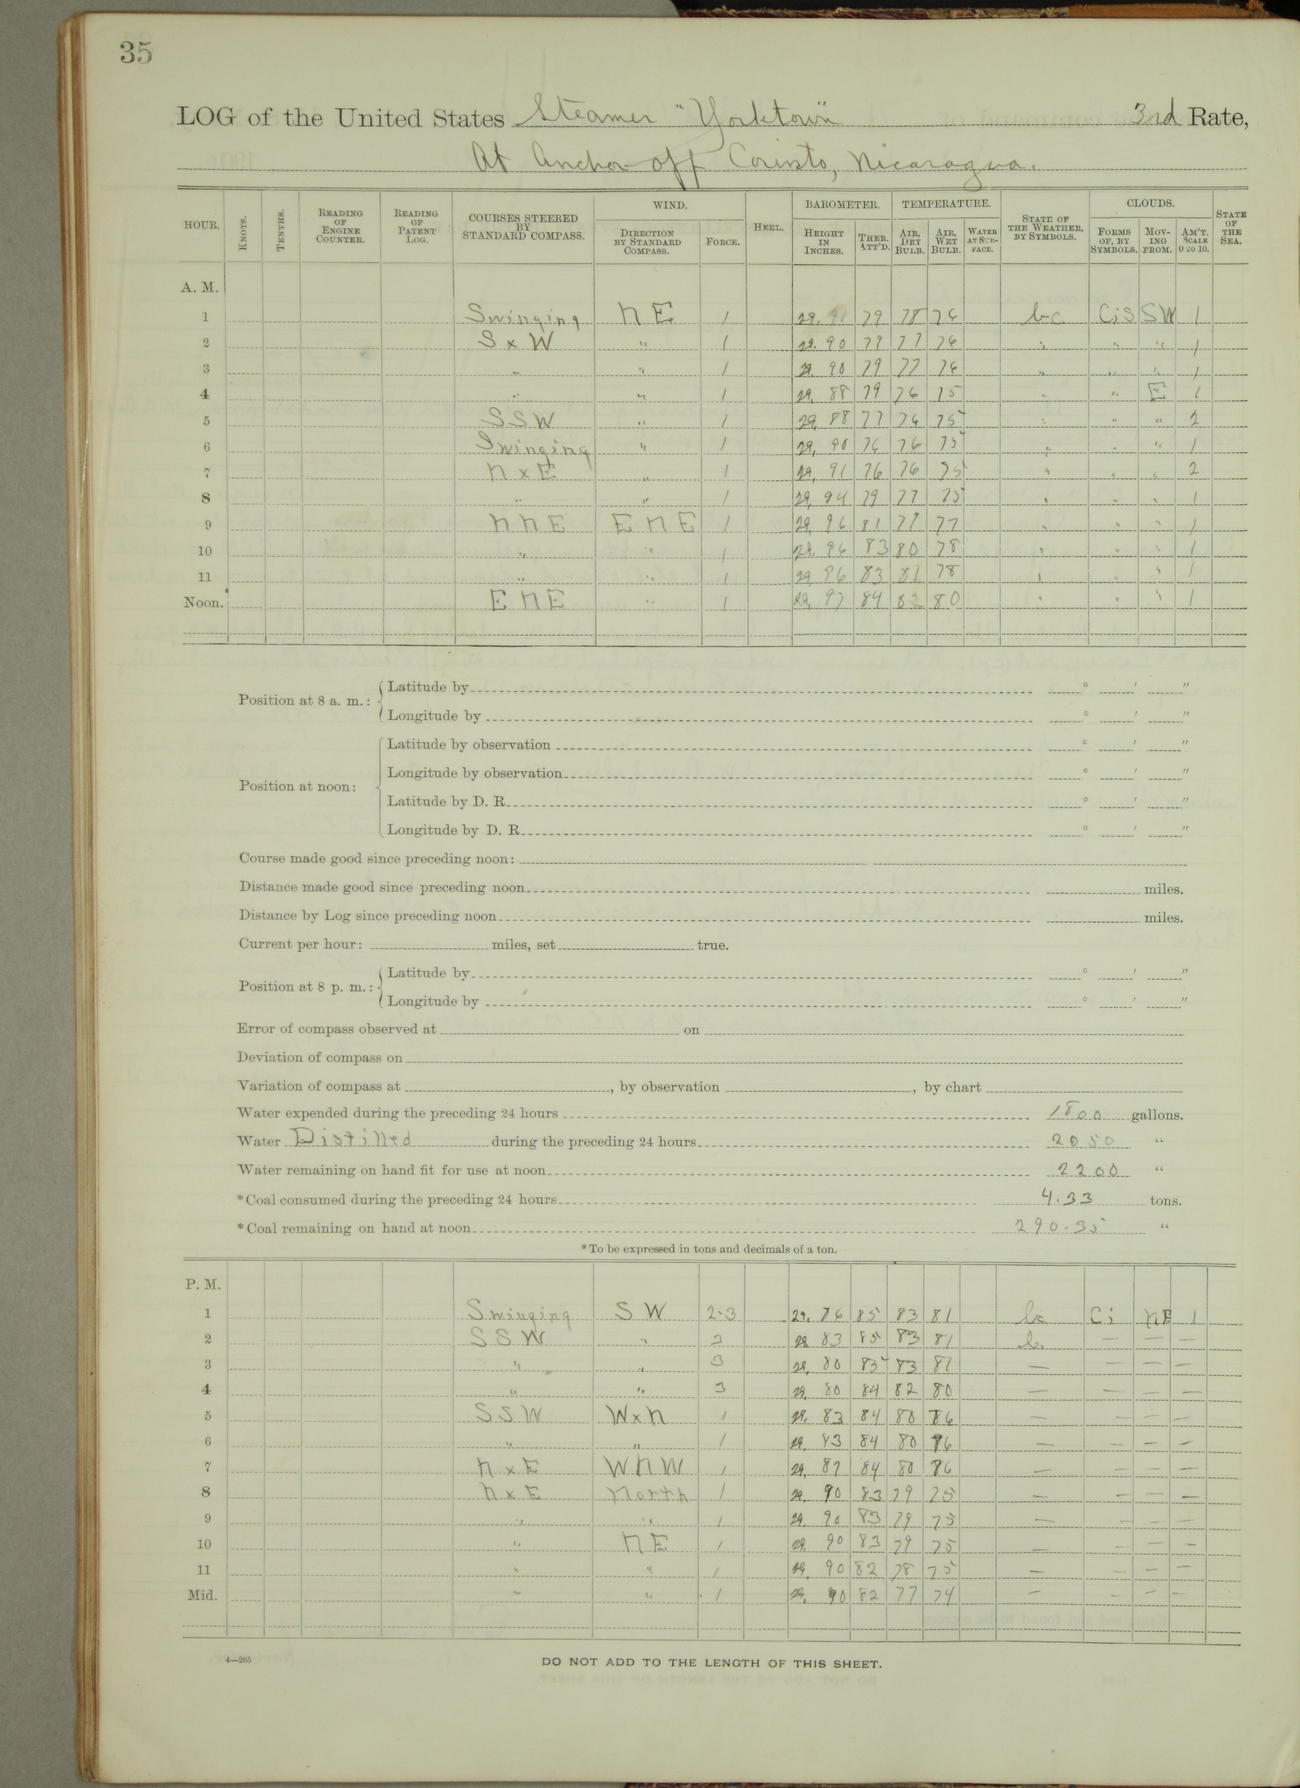 35
LOG of the United States Steamer "Yorktown" 3rd Rate,
At Anchor off Corinto, Nicaragua.
HOUR. KNOTS. TENTHS. READING OF ENGINE COUNTER. READING OF PATENT LOG. COURSES STEERED BY STANDARD COMPASS. WIND. DIRECTION BY STANDARD COMPASS. FORCE. HEEL. BAROMETER. HEIGHT IN INCHES. THER. ATT'D. TEMPERATURE. AIR, DRY BULB. AIR, WET BULB. WATER AT SURFACE. STATE OF THE WEATHER, BY SYMBOLS. CLOUDS. FORMS OF, BY SYMBOLS. MOVING FROM. AM'T. SCALE 0 TO 10. STATE OF THE SEA.
A. M.
1 Swinging NE 1 29.91 79 78 76 bc CiS SW 1
2 S x W " 1 29.90 79 77 76 " " " 1
3 " " 1 29.90 79 77 76 " " " 1
4 " " 1 29.88 79 76 75 " " E 1
5 SSW " 1 29.88 77 76 75 " " " 2
6 Swinging " 1 29.90 76 76 75 " " " 1
7 N x E " 1 29.91 76 76 75 " " " 2
8 " " 1 29.94 79 77 75 " " " 1
9 NNE ENE 1 29.96 81 79 77 " " " 1
10 " " 1 29.96 83 80 78 " " " 1
11 " " 1 29.96 83 81 78 " " " 1
Noon. ENE " 1 29.97 84 82 80 " " " 1
Position at 8 a. m.: Latitude by ° ' "
Longitude by ° ' "
Position at noon: Latitude by observation ° ' "
Longitude by observation ° ' "
Latitude by D. R. ° ' "
Longitude by D. R. ° ' "
Course made good since preceding noon:
Distance made good since preceding noon miles.
Distance by Log since preceding noon miles.
Current per hour: miles, set true.
Position at 8 p. m.: Latitude by ° ' "
Longitude by ° ' "
Error of compass observed at on
Deviation of compass on
Variation of compass at , by observation , by chart
Water expended during the preceding 24 hours 1800 gallons.
Water Distilled during the preceding 24 hours 2050 "
Water remaining on hand fit for use at noon 2200 "
*Coal consumed during the preceding 24 hours 4.33 tons.
*Coal remaining on hand at noon 290.35 "
*To be expressed in tons and decimals of a ton.
P. M.
1 Swinging SW 2-3 29.86 85 83 81 bc Ci NE 1
2 SSW " 3 29.83 85 83 81 b. — — —
3 " " 3 29.80 85 83 81 — — — —
4 " " 3 29.80 84 82 80 — — — —
5 SSW W x N 1 29.83 84 80 76 — — — —
6 " " 1 29.83 84 80 76 — — — —
7 N x E WNW 1 29.87 84 80 76 — — — —
8 N x E North 1 29.90 83 79 75 — — — —
9 " " 1 29.90 83 79 75 — — — —
10 " NE 1 29.90 83 79 75 — — — —
11 " " 1 29.90 82 78 75 — — — —
Mid. " " 1 29.90 82 77 74 — — — —
4—265
DO NOT ADD TO THE LENGTH OF THIS SHEET.